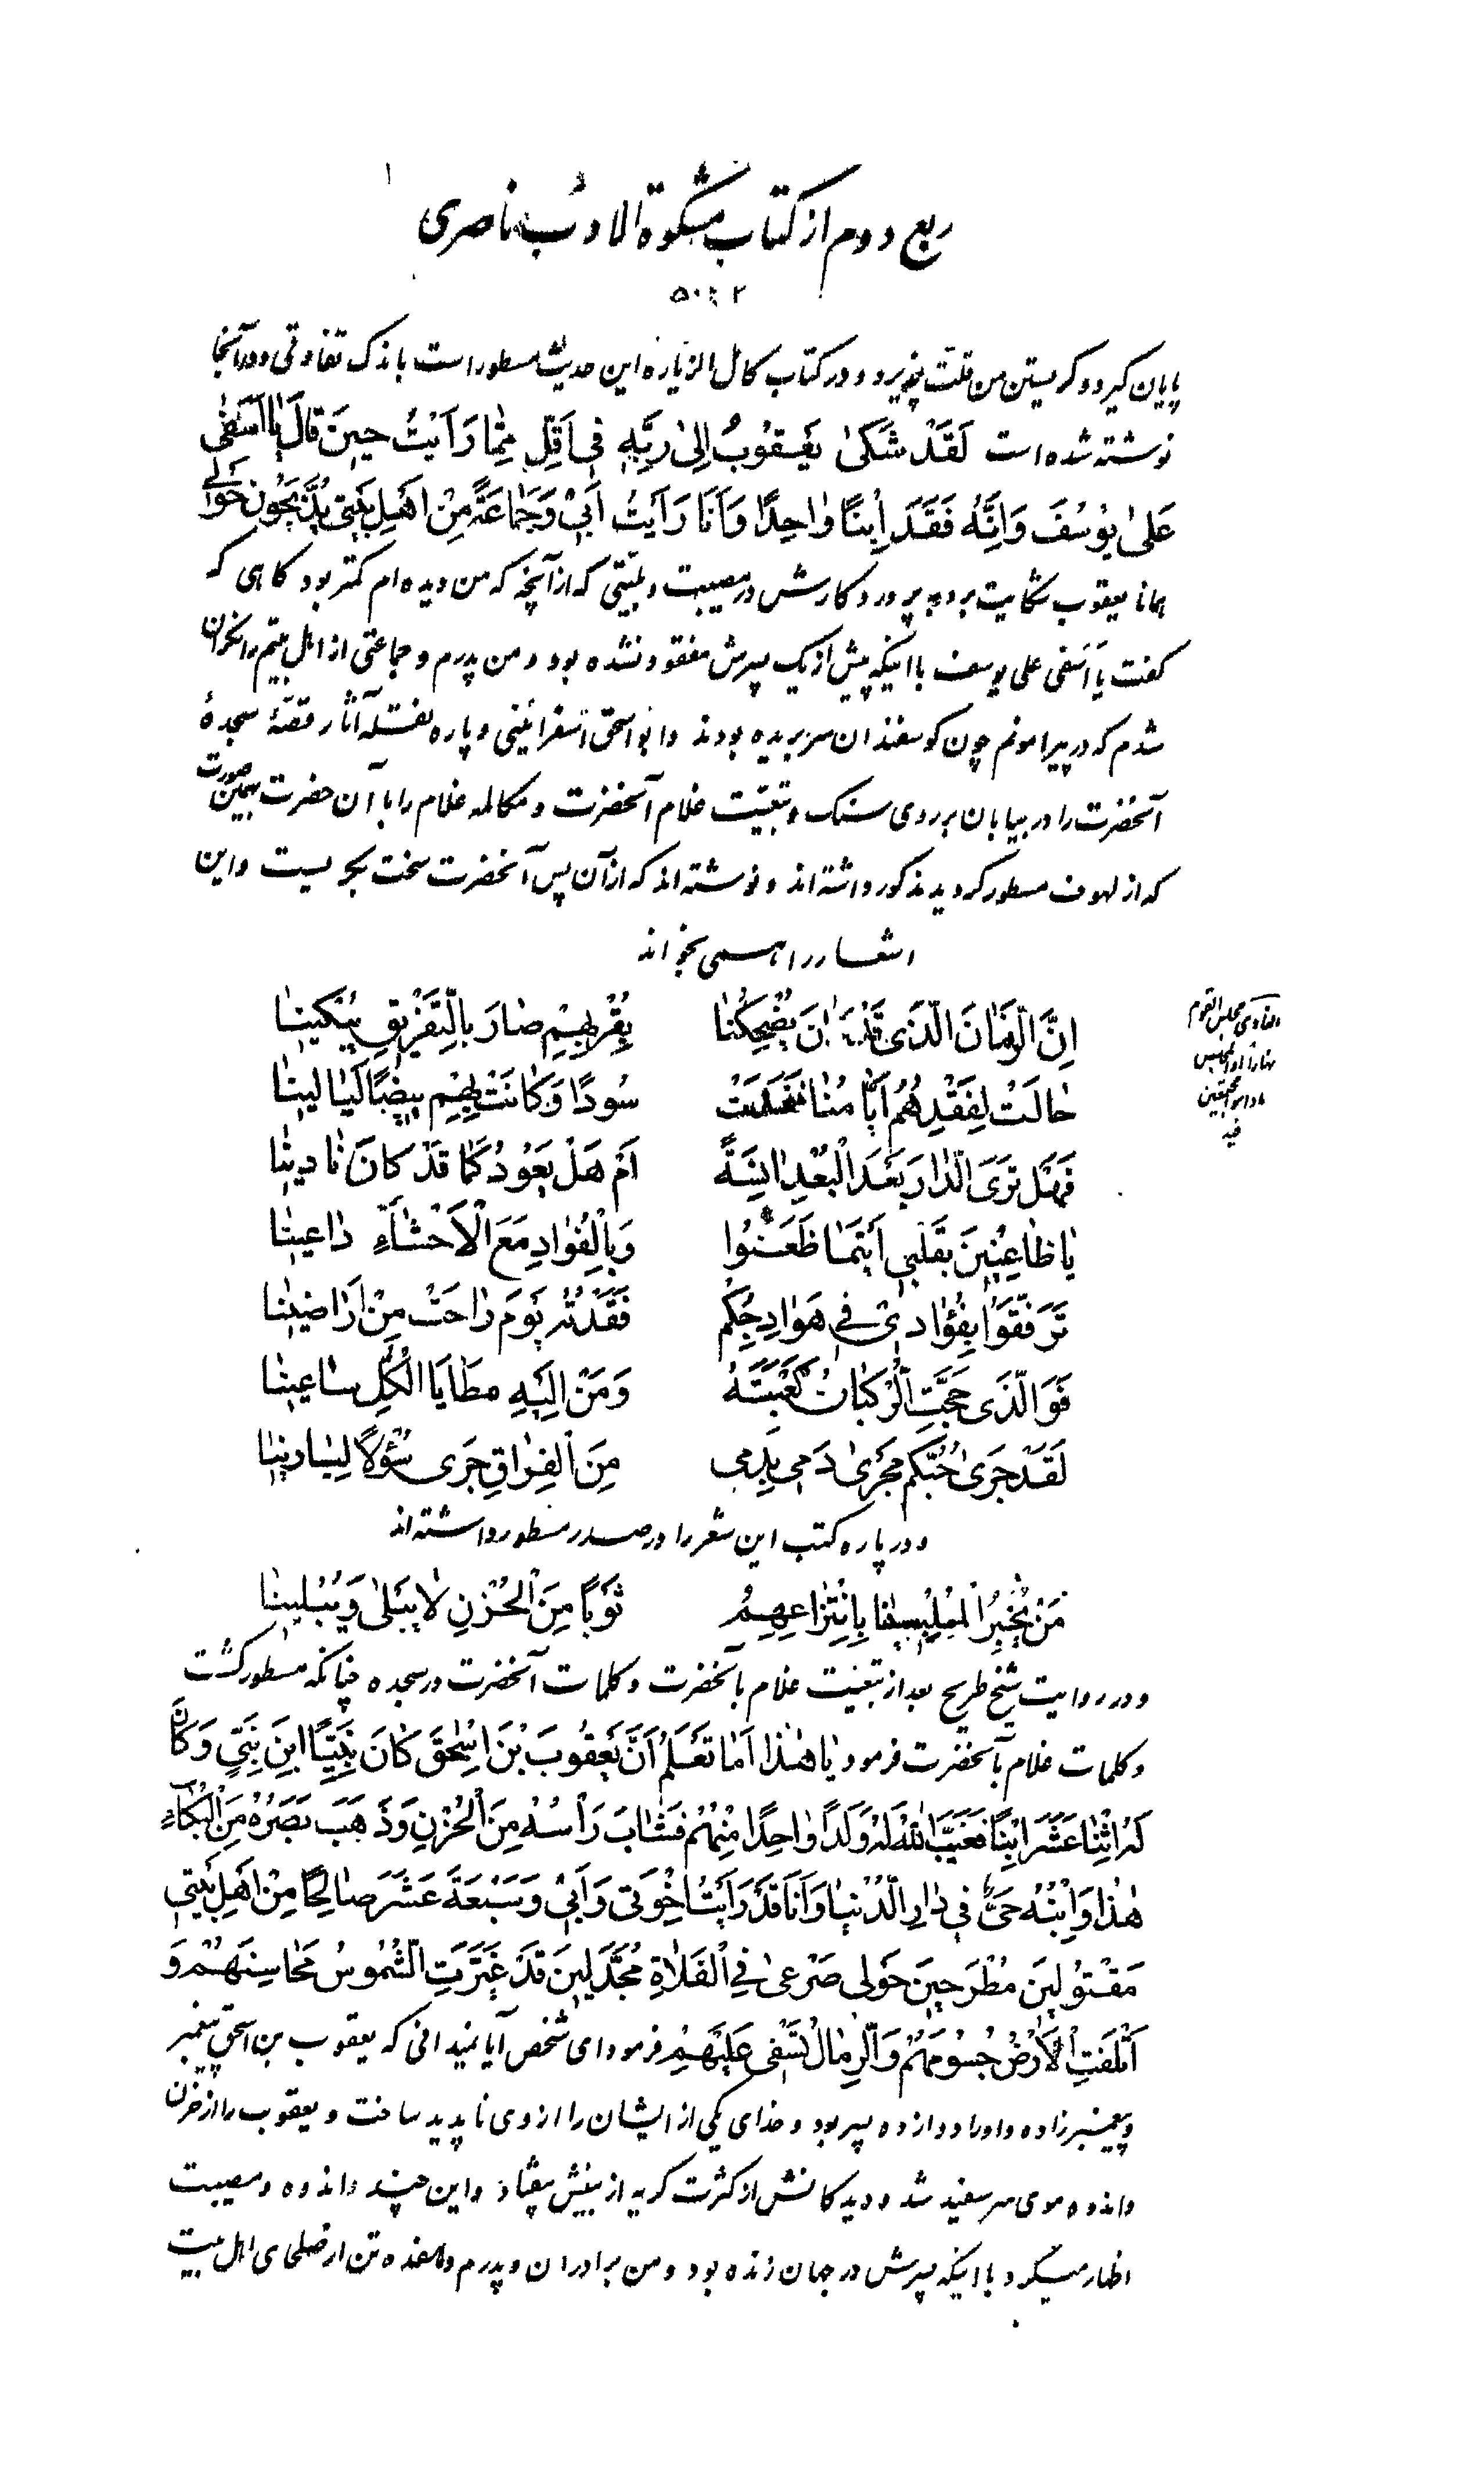 ربع دوم از کتاب مشکوة الادب ناصری
پایان گیرد و گریستن من قلّت پذیرد و در کتاب کامل الزیاره این حدیث مسطور است باندک تفاوتی و در آنجا
نوشته شده است لَقَدْ شَکیٰ یَعْقُوبُ اِلیٰ رَبِّهِ فِی اَقَلِّ مِمّٰا رَاَیْتُ حِینَ قٰالَ یٰا اَسَفیٰ
عَلیٰ یُوسُفَ وَاِنَّهُ فَقَدَ اِبْنًا وٰاحِدًا وَاَنَا رَاَیْتُ اَبِیْ وَجَمٰاعَةً مِنْ اَهْلِ بَیْتِی یُذْبَحُونَ حَوْلِی
همانا یعقوب شکایت برد به پروردگارش در مصیبت و بلیّتی که از آنچه که من دیده ام کمتر بود گاهی که
گفت یا اَسَفی علی یوسف با اینکه پیش از یک پسرش مفقود نشده بود و من پدرم و جماعتی از اهل بیتم را نگران
شدم که در پیرامونم چون گوسفندان سر بریده بودند و ابواسحق اسفراینی و پاره نقلهٔ آثار قصّهٔ سجدهٔ
آنحضرت را در بیابان بر روی سنگ و تبعیّت غلام آنحضرت و مکالمه غلام را با آن حضرت بهمین صورت
که از لهوف مسطور گردید مذکور داشته اند و نوشته اند که از آن پس آنحضرت سخت بگریست و این
اشعار را همی بخواند
اِنَّ الزَّمٰانَ الَّذی قَدْ کٰانَ یُضْحِکُنٰا بِقُرْبِهِمْ صٰارَ بِالتَّفْرِیقِ یُبْکینٰا
حٰالَتْ لِفَقْدِهُمُ اَیّٰامُنٰا فَغَدَتْ سُودًا وَکٰانَتْ بِهِمْ بِیضًا لَیٰالینٰا
فَهَلْ تَرَی الدّٰارَ بَعْدَ الْبُعْدِ اٰنِسَةً اَمْ هَلْ یَعُودُ کَمٰا قَدْ کٰانَ نٰادینٰا
یٰا ظٰاعِنِینَ بِقَلْبِی اَیْنَمٰا ظَعَنُوا وَبِالْفُوٰادِ مَعَ الْاَحْشٰاءِ دٰاعینٰا
تَرَفَّقُوا بِفُؤٰادِی فِی هَوٰادِجِکُمْ فَقَدْتُهُ یَوْمَ رٰاحَتْ مِنْ اَرٰاضینٰا
فَوَ الَّذی حَجَّتِ الرُّکْبٰانُ کَعْبَتَهُ وَمَنْ اِلَیْهِ مَطٰایَا الْکُلِّ سٰاعینٰا
لَقَدْ جَریٰ حُبُّکُمْ مَجْریٰ دَمِی بِدَمِی مِنَ الْفِرٰاقِ جَری سُؤْلًا
و در پاره کتب این شعر را در صدر مسطور داشته اند
مَنْ مُخْبِرُ الْمُلْبِسینٰا بِانْتِزٰاعِهِمُ ثَوْبًا مِنَ الْحُزْنِ لٰا یَبْلیٰ وَیُبْلینٰا
و در روایت شیخ طریح بعد از تبعیت غلام با آنحضرت و کلمات آنحضرت در سجده چنانکه مسطور گشت
و کلمات غلام بآنحضرت فرمود یٰا هٰذٰا اَمٰا تَعْلَمُ اَنَّ یَعْقُوبَ بْنَ اِسْحٰقَ کٰانَ نَبِیًّا ابْنَ نَبِیٍّ وَکٰانَ
لَهُ اثْنٰا عَشَرَ ابْنًا فَغَیَّبَ اللّٰهُ لَهُ وَلَدًا وٰاحِدًا مِنْهُمْ فَشٰابَ رَاْسُهُ مِنَ الْحُزْنِ وَذَهَبَ بَصَرُهُ مِنَ الْبُکٰاءِ
هٰذٰا وَابْنُهُ حَیٌّ فِی دٰارِ الدُّنْیٰا وَاَنَا قَدْ رَاَیْتُ اِخْوَتِی وَاَبِیْ وَسَبْعَةَ عَشَرَ صٰالِحًا مِنْ اَهْلِ بَیْتِی
مَقْتُولِینَ مُطْرَحِینَ حَوْلِی صَرْعیٰ فِی الْفَلٰاةِ مُجَدَّلِینَ قَدْ غَیَّرَتِ الشُّمُوسُ مَحٰاسِنَهُمْ وَ
اَتْلَفَتِ الْاَرْضُ جُسُومَهُمْ وَالرِّمٰالُ تَسْفِی عَلَیْهِمْ فرمود ای شخص آیا نمیدانی که یعقوب بن اسحق پیغمبر
و پیغمبرزاده و او را دوازده پسر بود و خدای یکی از ایشان را از وی ناپدید ساخت و یعقوب را از حزن
و اندوه موی سر سفید شد و دیدگانش از کثرت گریه از بینش بیفتاد و این چند و اندوه و مصیبت
اظهار میکرد با اینکه پسرش در جهان زنده بود و من برادران و پدرم و هفده تن از صلحای اهل بیت